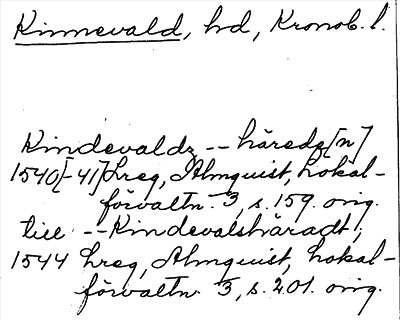 Kinnevald, hd, Kronob. l.
Kindevaldz -- häredz[n]
1540[-41] Lreg, Almquist, Lokal-
förvaltn. 3, s. 159. orig.
till -- Kindevalshäradt,
1544 Lreg, Almquist, Lokal-
förvaltn 3, s. 201. orig.